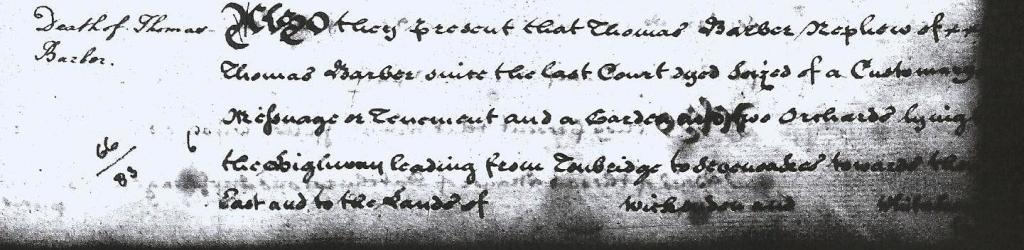 Death of Thomas
Barber.
Also they present that Thomas Barber Nephew of
Thomas Barber since the last Court dyed Seized of a Customary
Messuage or Tenement and a Garden and two Orchards lying
the Highway leading from Tonbridge to Sevenoakes towards the
East and to the Lands of and
66/83